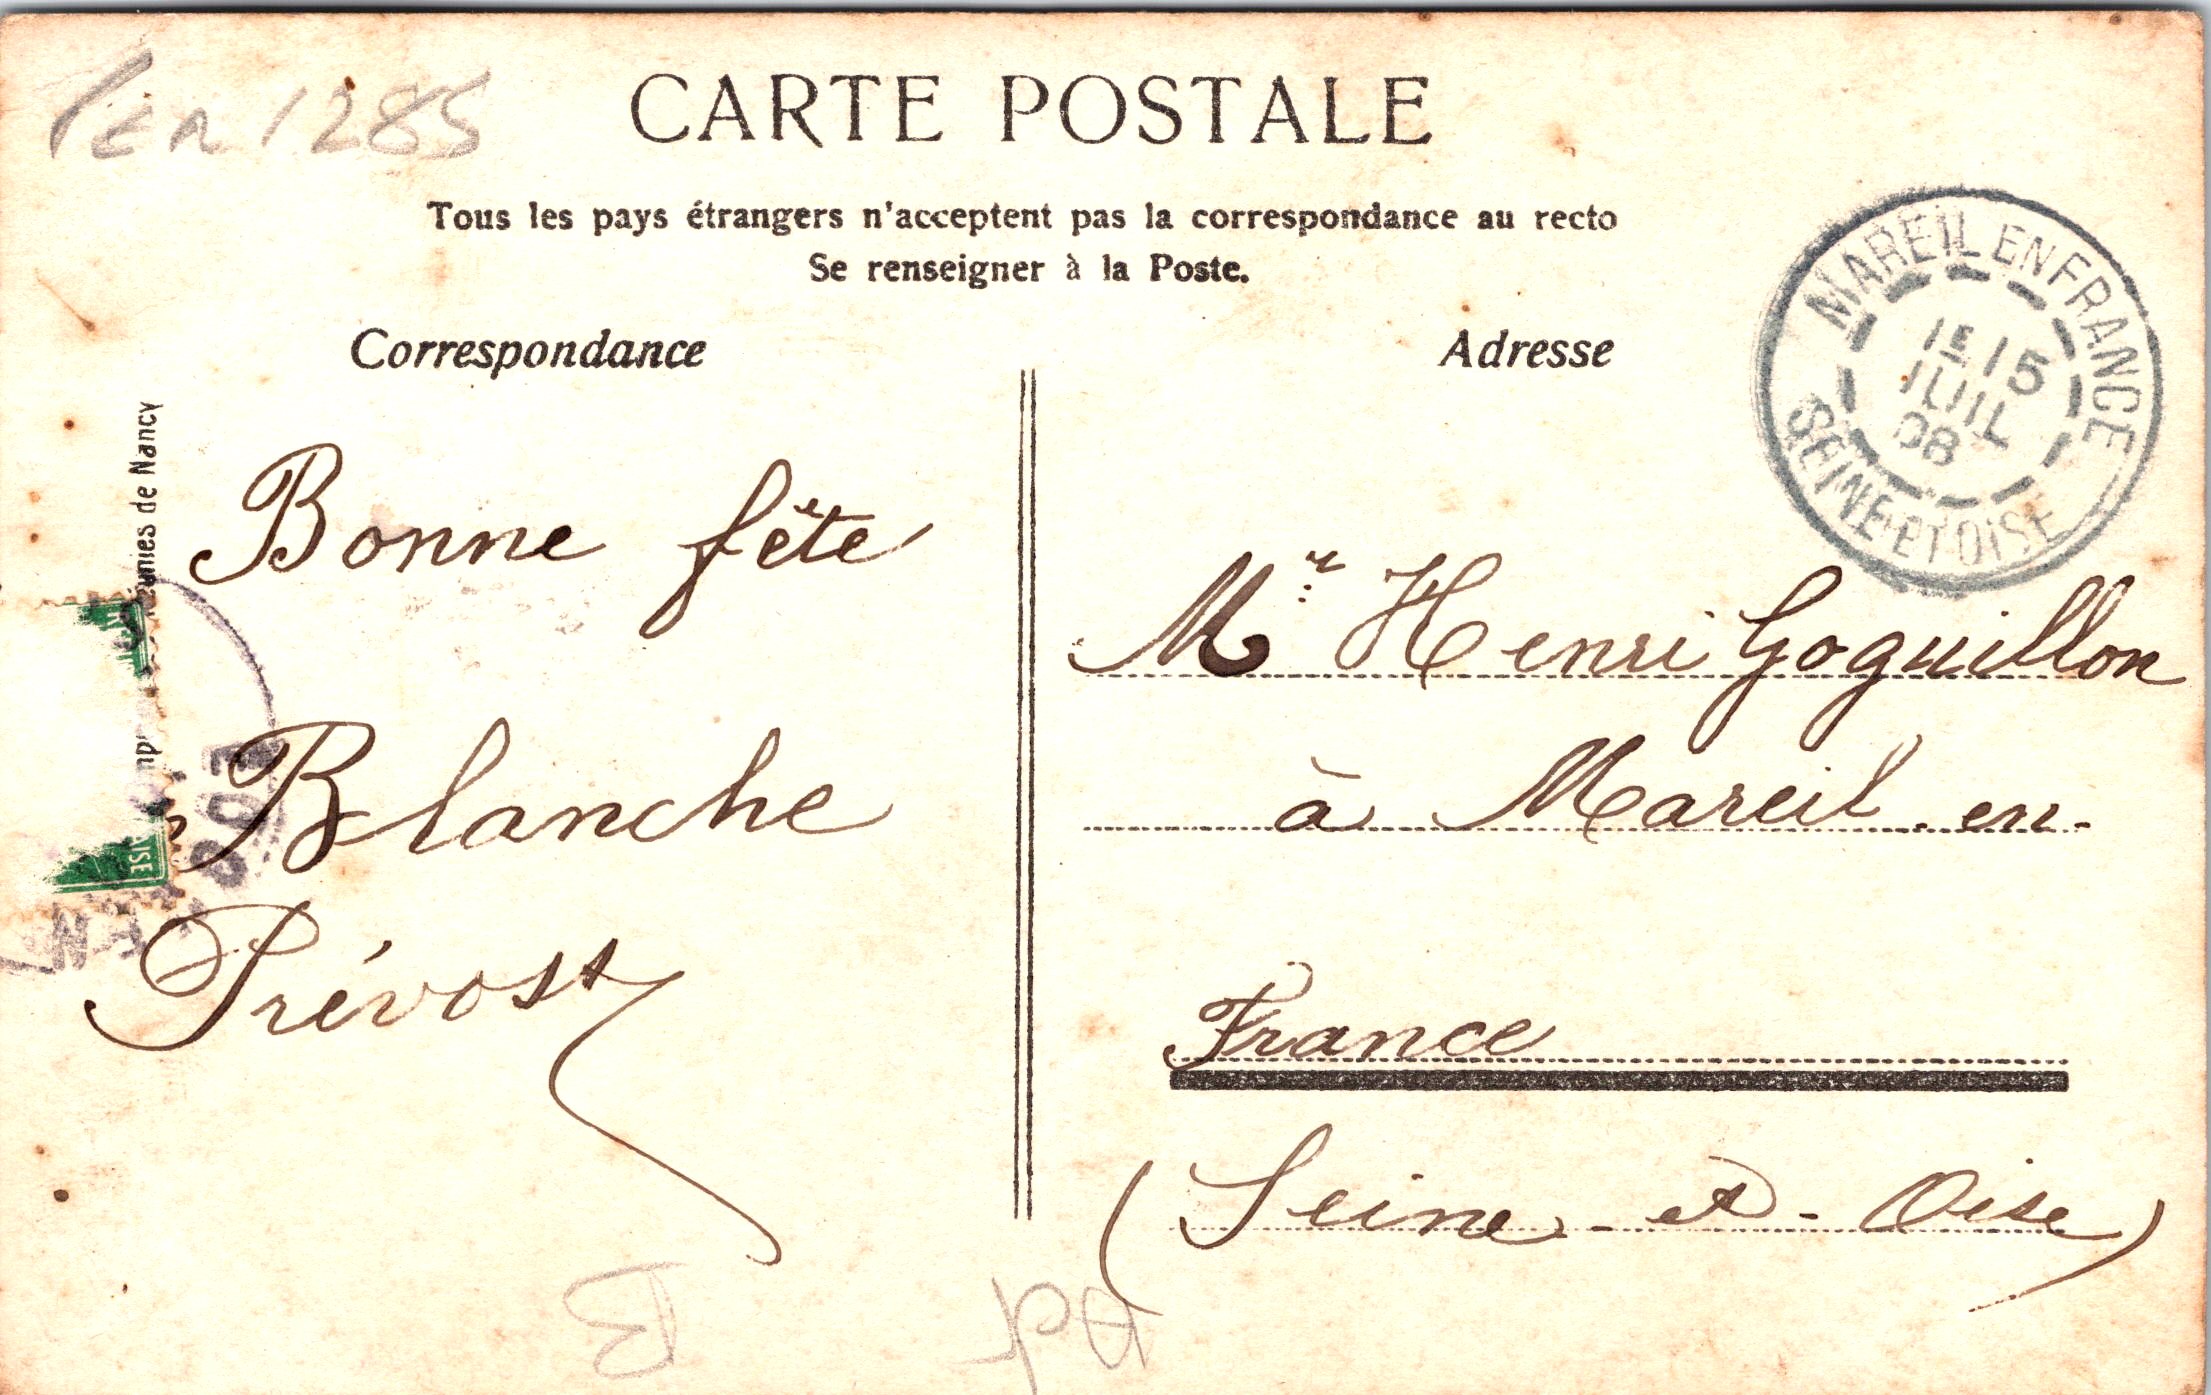 Per 1285
CARTE POSTALE
Tous les pays étrangers n'acceptent pas la correspondance au recto
Se renseigner à la Poste.
Correspondance
Adresse
MAREIL EN FRANCE
1E 15
JUIL
08
SEINE-ET-OISE
éunies de Nancy
Bonne fête
Blanche
Prévost
Mr Henri Goguillon
à Mareil-en-
France
(Seine-et-Oise)
AISE